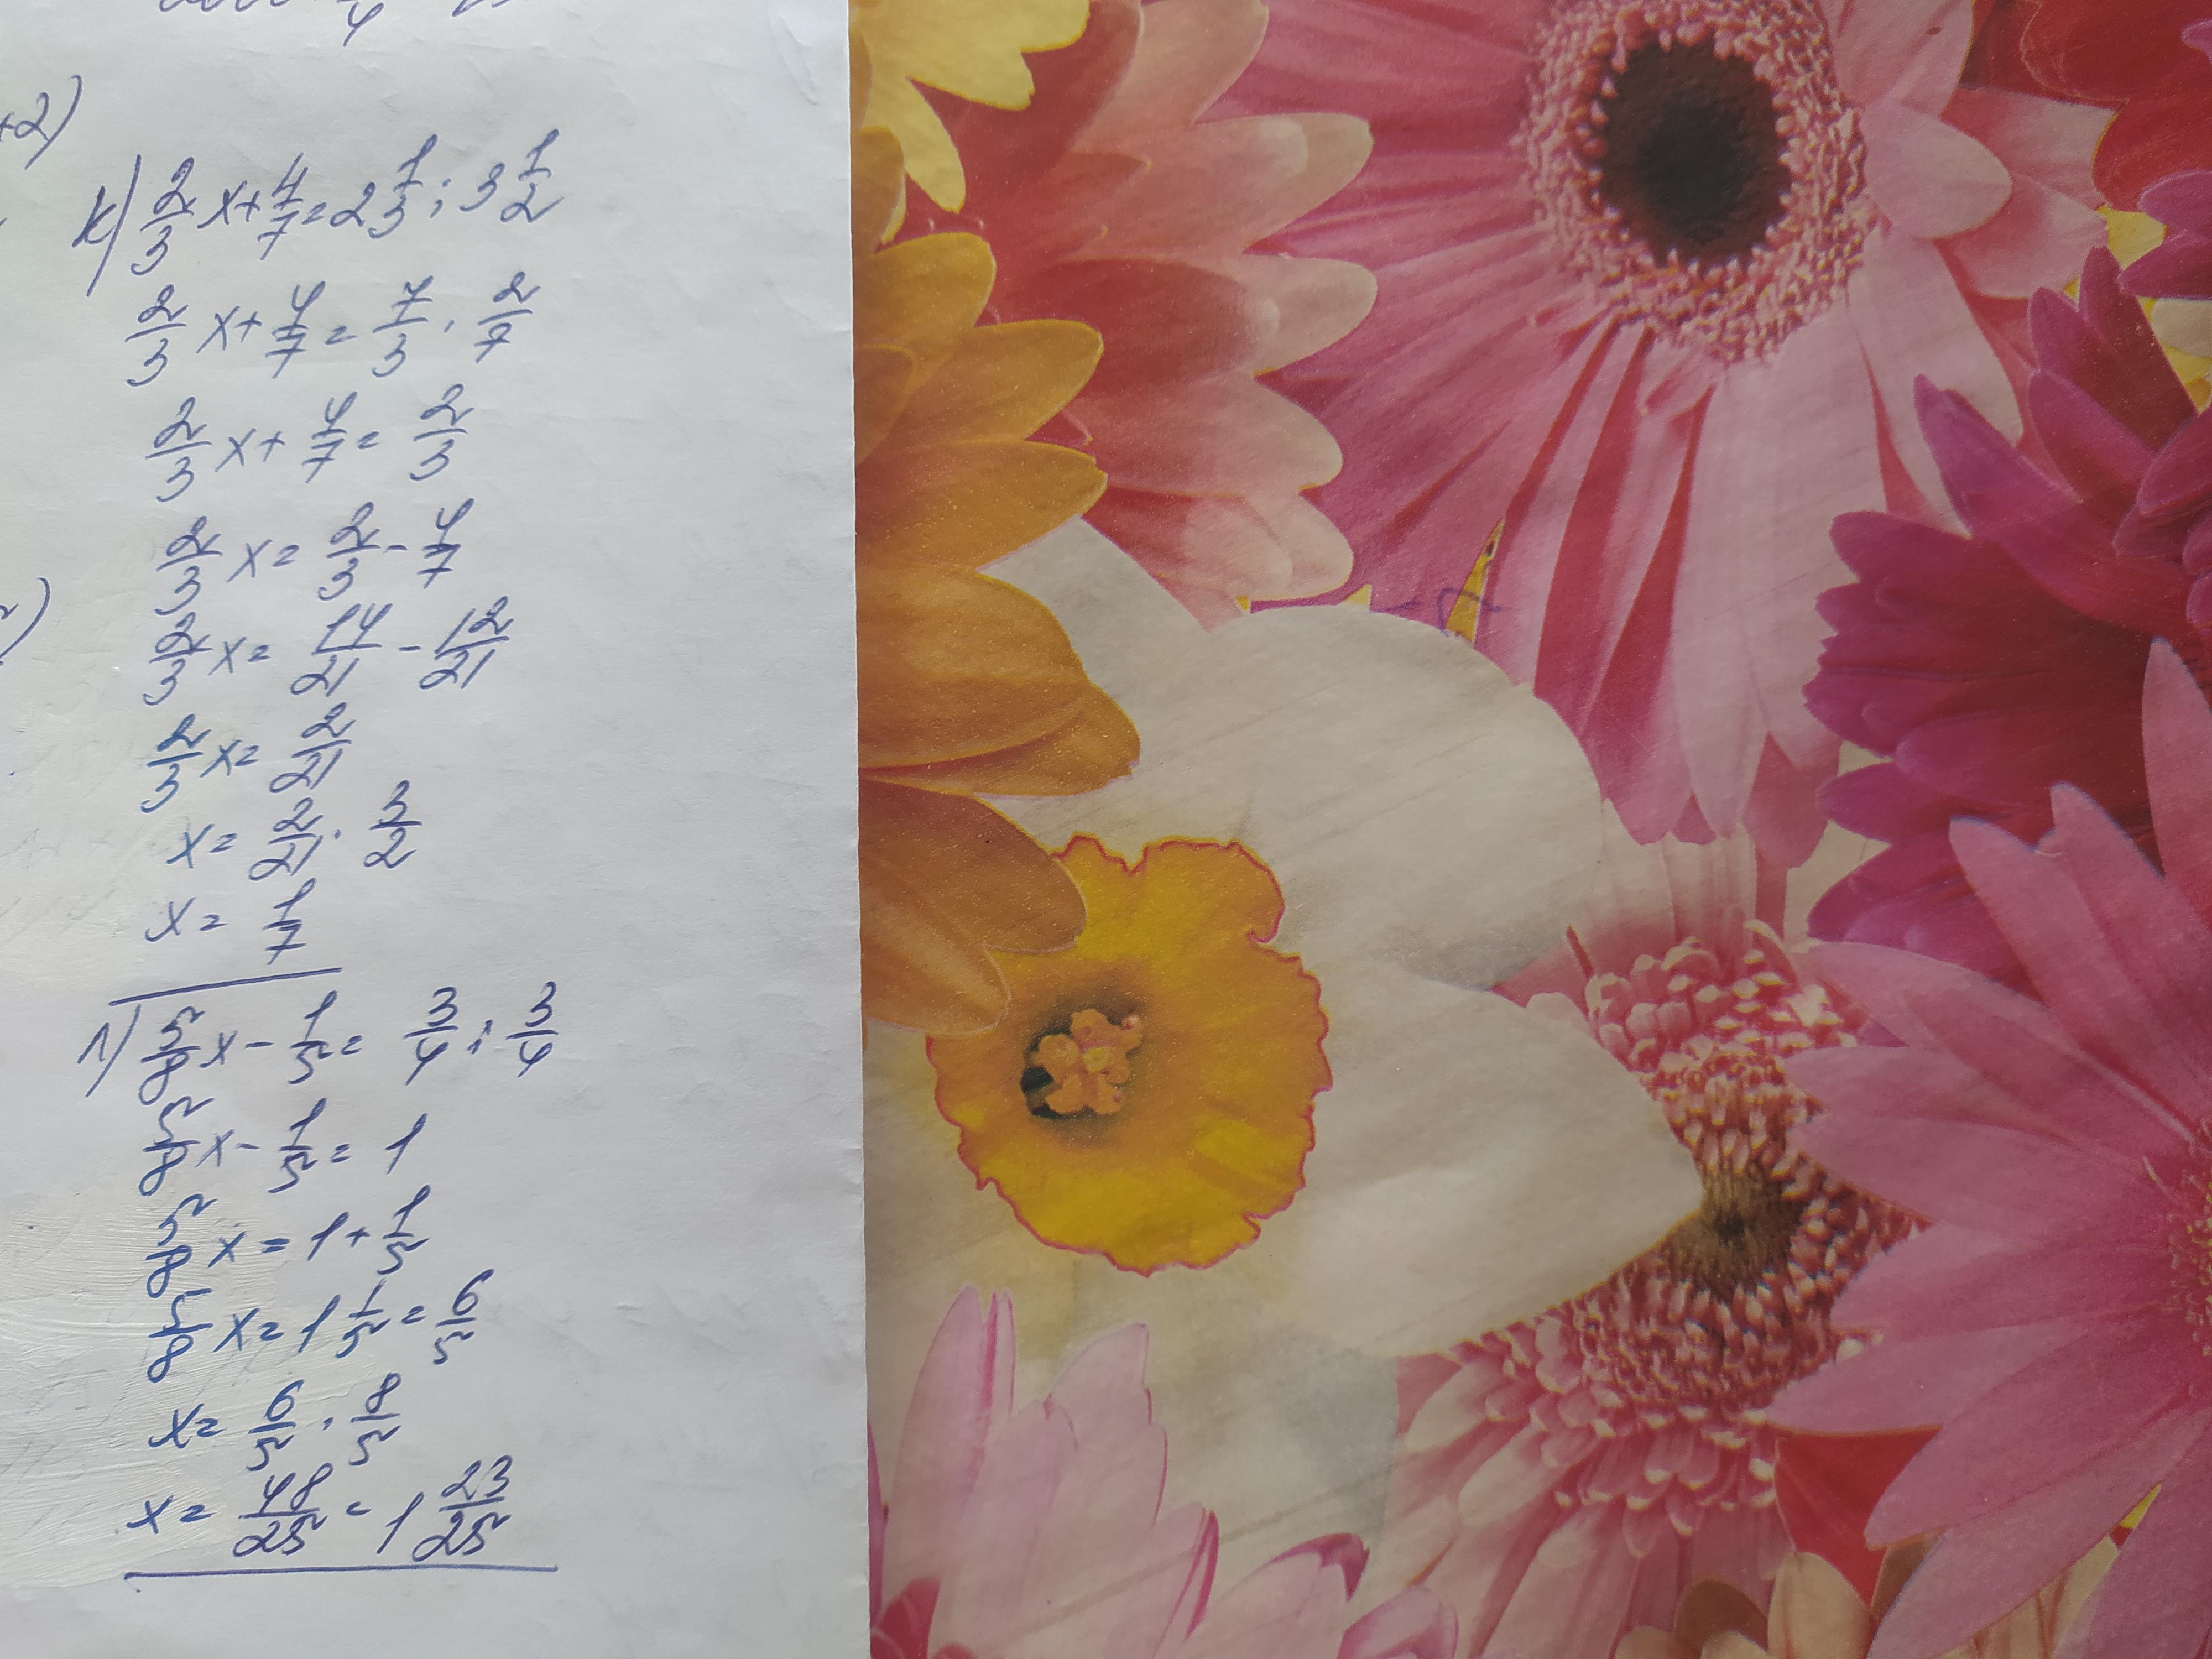 +2)
к) 2/3 x + 4/7 = 2 1/3 : 3 1/2
2/3 x + 4/7 = 7/3 · 2/7
2/3 x + 4/7 = 2/3
2/3 x = 2/3 - 4/7
2/3 x = 14/21 - 12/21
2/3 x = 2/21
x = 2/21 · 3/2
x = 1/7
л) 5/8 x - 1/5 = 3/4 : 3/4
5/8 x - 1/5 = 1
5/8 x = 1 + 1/5
5/8 x = 1 1/5 = 6/5
x = 6/5 · 8/5
x = 48/25 = 1 23/25